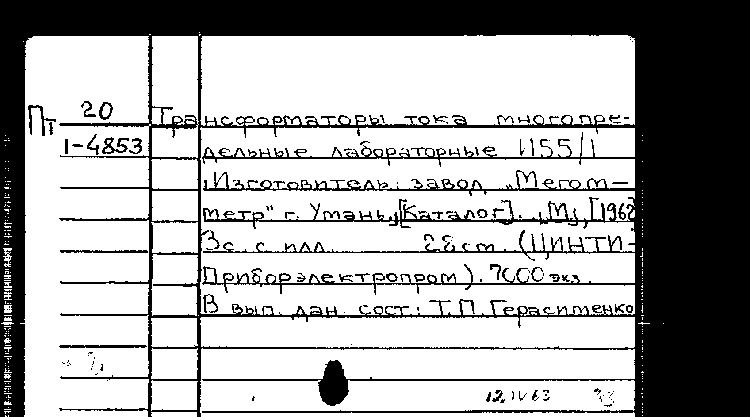 Пт 20
1-4853
Трансформаторы тока многопре-
дельные лабораторные И55/1
Изготовитель: завод „Мегом-
метр" г. Умань. [Каталог]. М., [1962
3с. с илл. 28см. (ЦИНТИ-
Приборэлектропром). 7000 экз.
В вып. дан. сост.: Т.П. Герасименко
12.IV 63